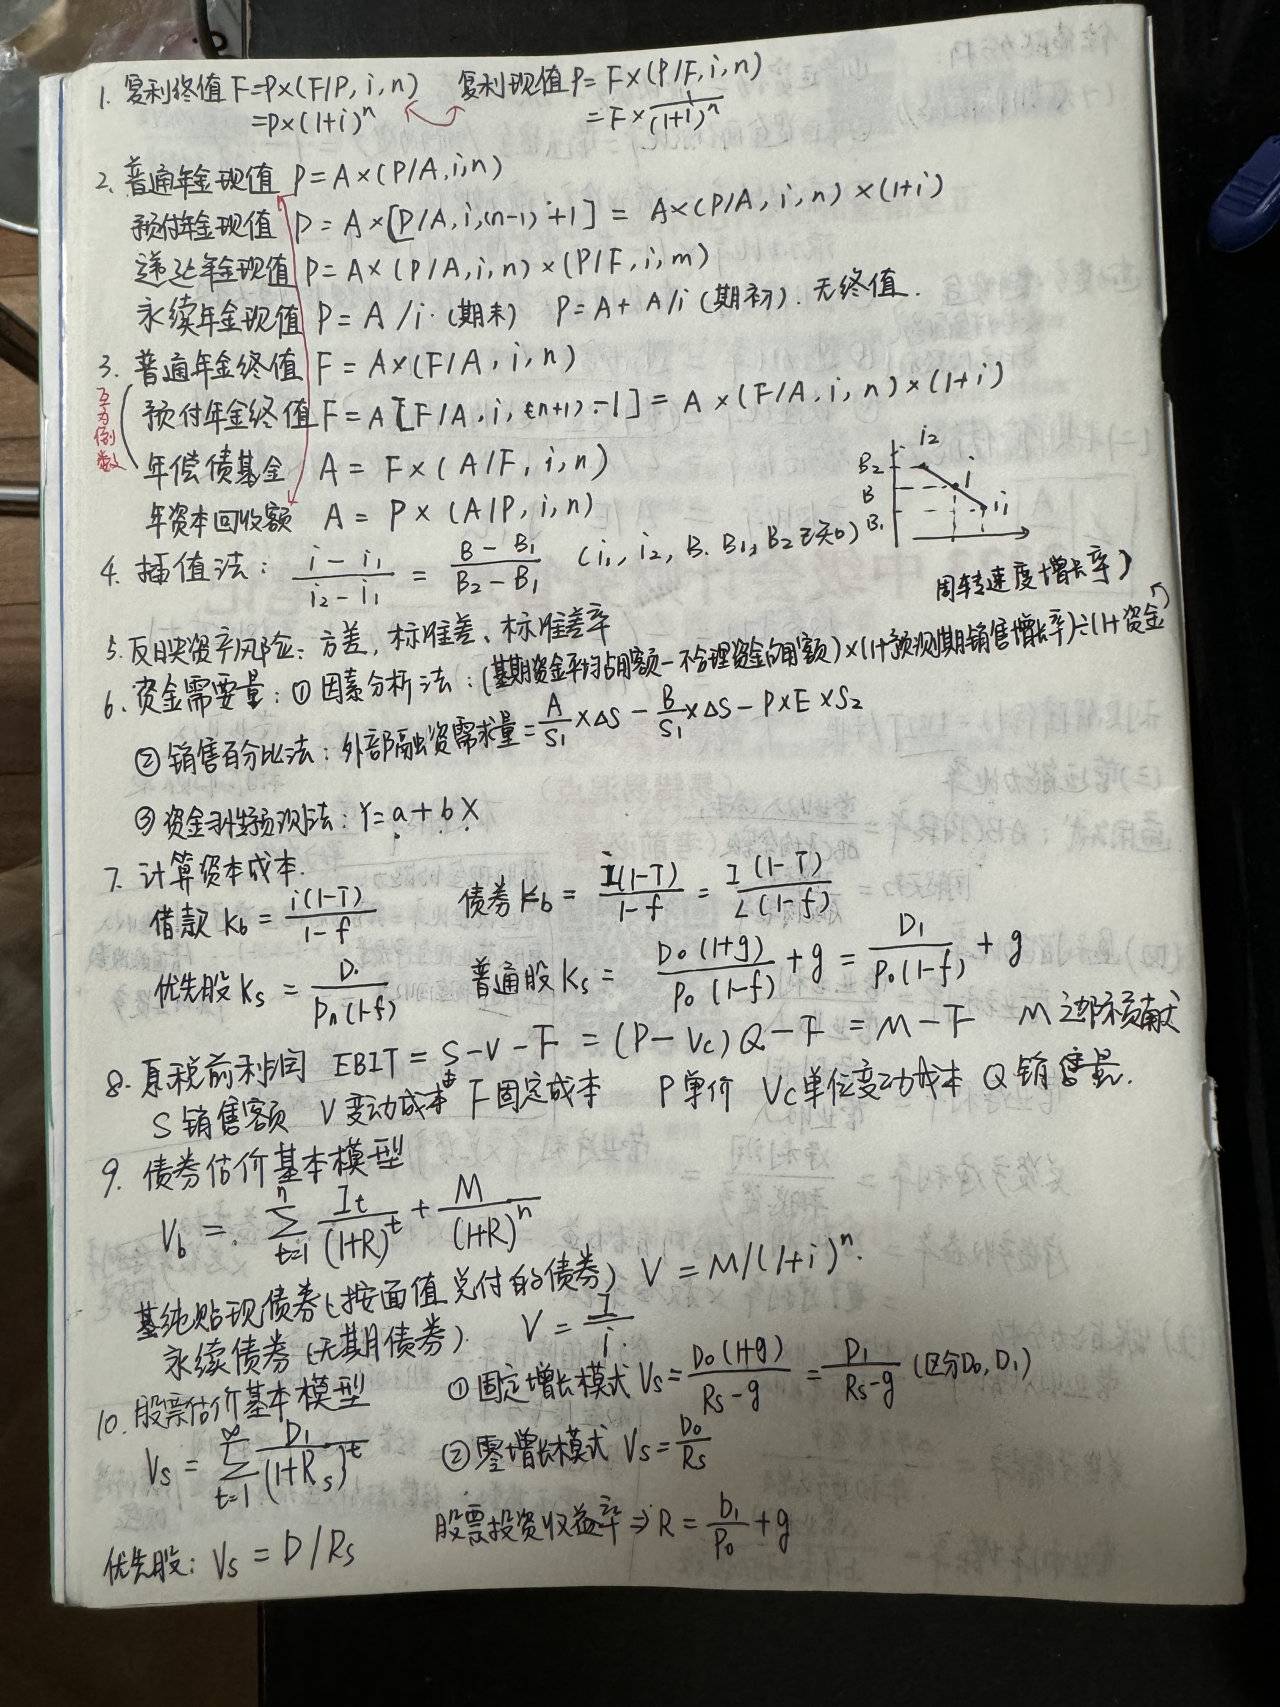 1. 复利终值 F=P×(F/P, i, n) 复利现值 P= F×(P/F, i, n)
=P×(1+i)^n = F×1/(1+i)^n
2. 普通年金现值 P=A×(P/A, i, n)
预付年金现值 P=A×[P/A, i, (n-1)+1] = A×(P/A, i, n)×(1+i)
递延年金现值 P=A×(P/A, i, n)×(P/F, i, m)
永续年金现值 P=A/i (期末) P=A+A/i (期初). 无终值.
3. 普通年金终值 F=A×(F/A, i, n)
预付年金终值 F=A[F/A, i, (n+1)-1] = A×(F/A, i, n)×(1+i)
年偿债基金 A=F×(A/F, i, n)
年资本回收额 A=P×(A/P, i, n)
互为倒数
B2 B B1 i2 i i1
4. 插值法: (i-i1)/(i2-i1) = (B-B1)/(B2-B1) (i1, i2, B. B1, B2已知)
周转速度增长率)
5. 反映资产风险: 方差, 标准差、标准差率
6. 资金需要量: ① 因素分析法: (基期资金平均占用额-不合理资金占用额)×(1+预测期销售增长率)÷(1+资金
② 销售百分比法: 外部融资需求量=A/S1×ΔS-B/S1×ΔS-P×E×S2
③ 资金习性预测法: Y=a+bX
7. 计算资本成本.
借款 Kb=i(1-T)/(1-f) 债券 Kb=I(1-T)/(1-f)=I(1-T)/L(1-f)
优先股 Ks=D/Pn(1-f) 普通股 Ks=D0(1+g)/P0(1-f)+g=D1/P0(1-f)+g
8. 息税前利润 EBIT=S-V-F=(P-Vc)Q-F=M-F M边际贡献
S销售额 V变动成本 F固定成本 P单价 Vc单位变动成本 Q销售量.
9. 债券估价基本模型
Vb=∑(t=1→n) It/(1+R)^t+M/(1+R)^n
基纯贴现债券(按面值兑付的债券) V=M/(1+i)^n.
永续债券(无期债券). V=I/i
10. 股票估价基本模型 ①固定增长模式 Vs=D0(1+g)/(Rs-g)=D1/(Rs-g) (区分D0, D1)
Vs=∑(t=1→∞) D1/(1+Rs)^t ②零增长模式 Vs=D0/Rs
优先股: Vs=D/Rs 股票投资收益率⇒R=D1/P0+g